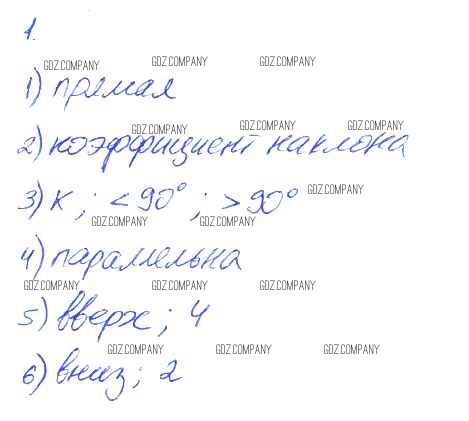 1.
GDZ.COMPANY GDZ.COMPANY GDZ.COMPANY
1) прямая
GDZ.COMPANY GDZ.COMPANY GDZ.COMPANY
2) коэффициент наклона
GDZ.COMPANY
3) к ; < 90° ; > 90°
GDZ.COMPANY GDZ.COMPANY
4) параллельна
GDZ.COMPANY GDZ.COMPANY GDZ.COMPANY
5) вверх ; 4
GDZ.COMPANY GDZ.COMPANY GDZ.COMPANY
6) вниз ; 2